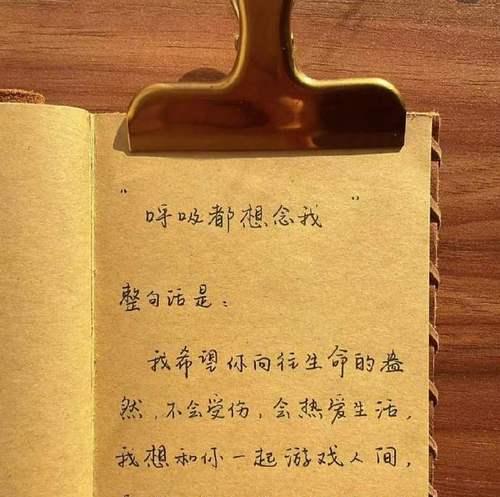 "呼吸都想念我"
整句话是：
我希望你向往生命的盎
然，不会受伤，会热爱生活，
我想和你一起游戏人间，